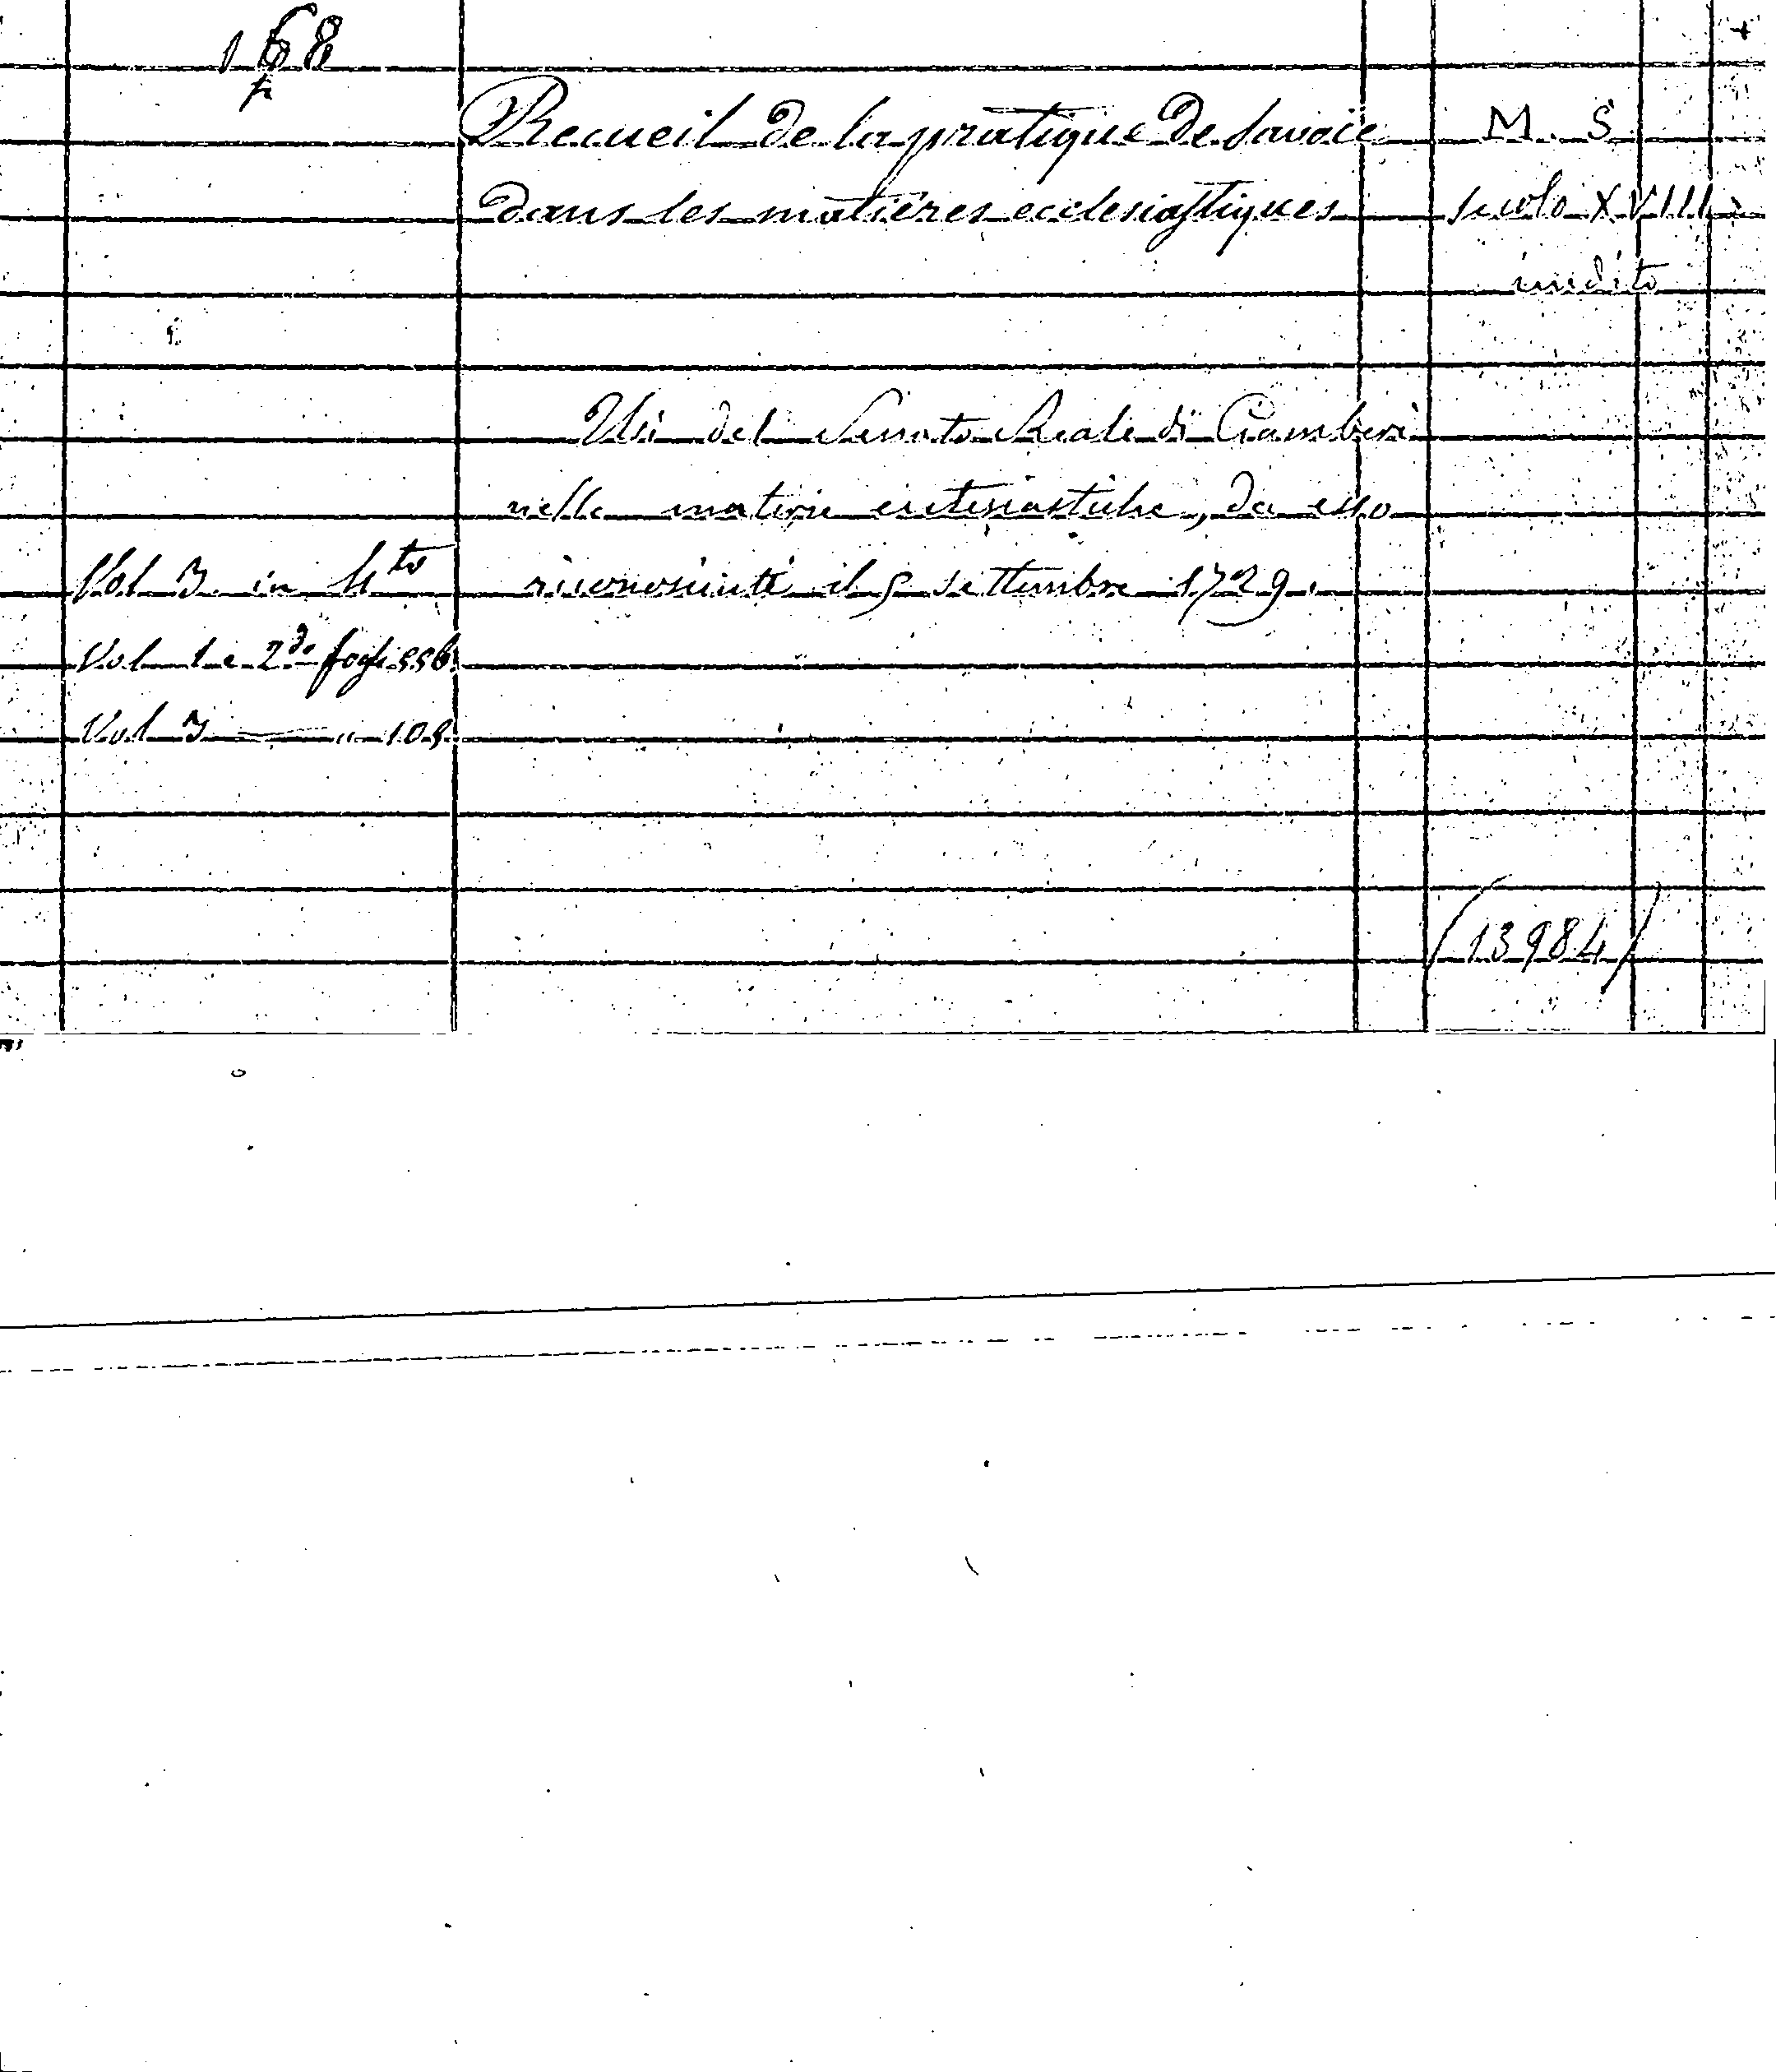 168
Recueil de la pratique de Savoïe
M. S
dans les matiéres ecclesiastiques
secolo XVIII
inedito
Usi del Senato Reale di Ciamberì
nelle materie ecclesiastiche, da esso
Vol 3 in 4to
riconosciuti il 5 settembre 1729.
Vol 1 e 2do fogli 556
Vol 3 — " 105
(13984)